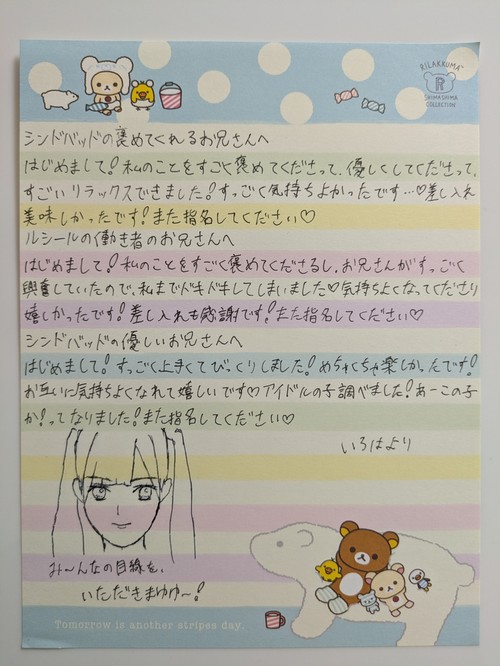 RILAKKUMA™
R
SHIMASHIMA
COLLECTION
シンドバッドの褒めてくれるお兄さんへ
はじめまして!私のことをすごく褒めてくださって、優しくしてくださって、
すごいリラックスできました!すっごく気持ちよかったです…♡差し入れ
美味しかったです!また指名してください♡
ルシールの働き者のお兄さんへ
はじめまして!私のことをすごく褒めてくださるし、お兄さんがすっごく
興奮していたので、私までドキドキしてしまいました♡気持ちよくなってくださり
嬉しかったです!差し入れも感謝です!また指名してください♡
シンドバッドの優しいお兄さんへ
はじめまして!すっごく上手くてびっくりしました!めちゃくちゃ楽しかったです!
お互いに気持ちよくなれて嬉しいです♡アイドルの子調べました!あーこの子
か!ってなりました!また指名してください♡
いろはより
み〜んなの目線を、
いただきまゆゆ〜!
Tomorrow is another stripes day.